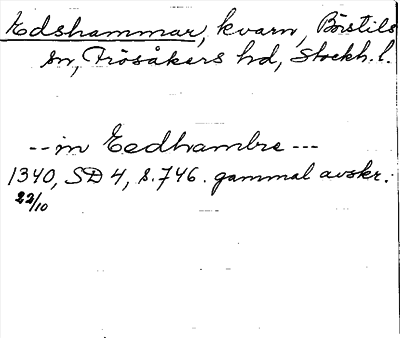 Edshammar, kvarn, Börstils
sn, Frösåkers hd, Stockh. l.
-- in Eedhambre ---
1340, SD 4, s. 746. gammal avskr.:
22/10